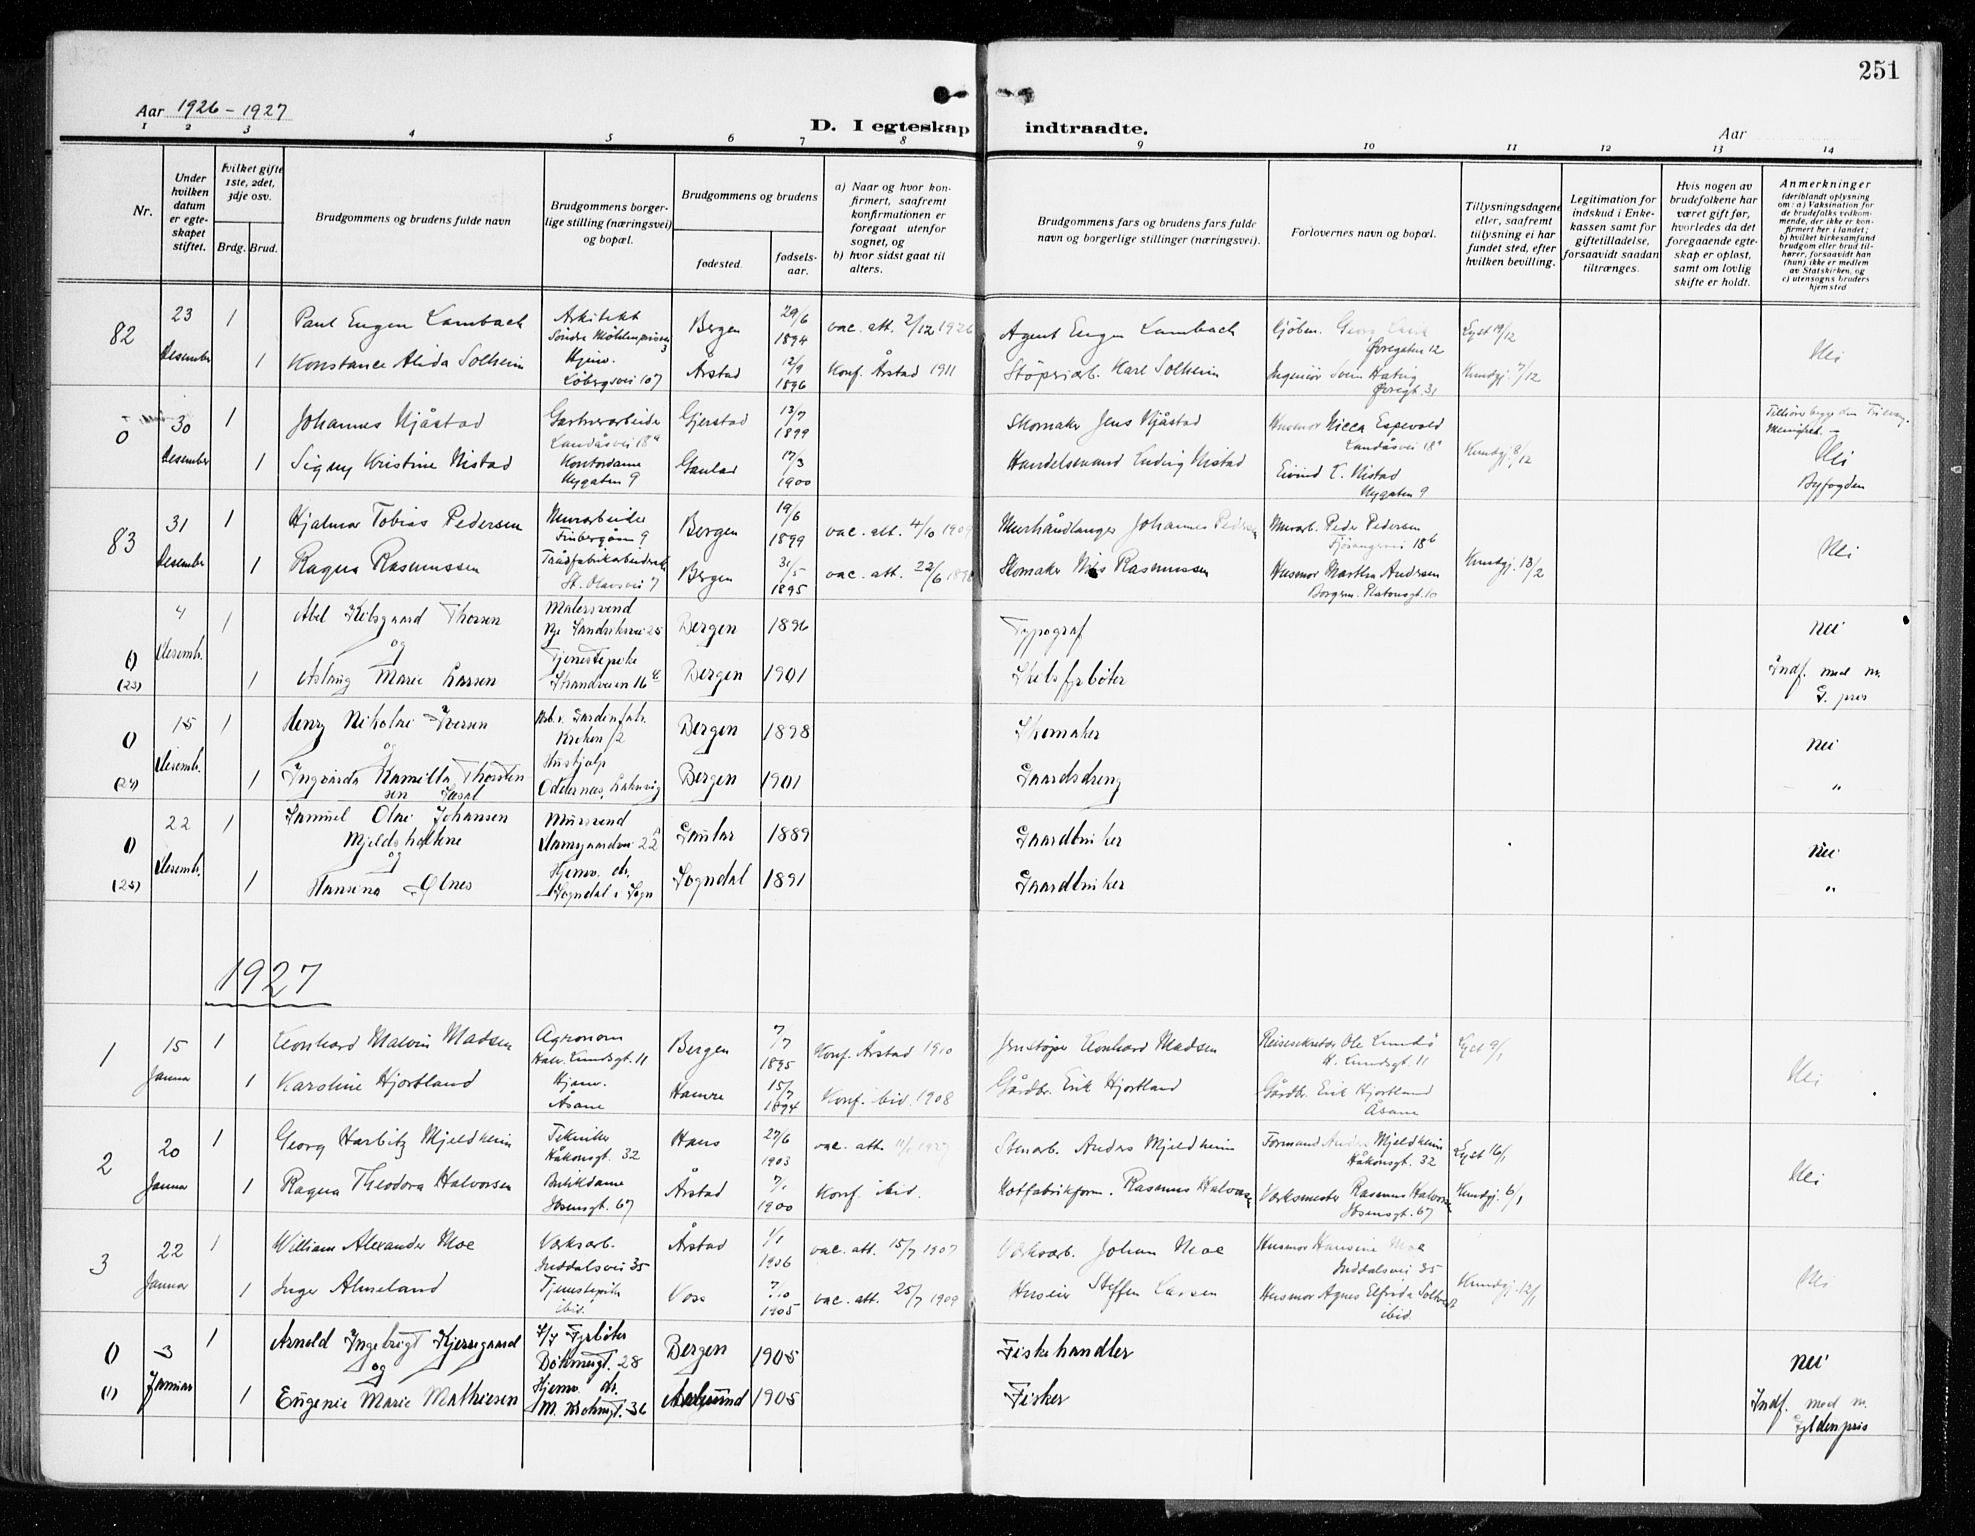 251
Aar 1926 - 1927
D. I egteskap indtraadte.
Aar
1 2 3 4 5 6 7 8 9 10 11 12 13 14
Nr.
Under hvilken datum er egteskapet stiftet.
Hvilket gifte 1ste, 2det, 3dje osv.
Brdg. Brud.
Brudgommens og brudens fulde navn
Brudgommens borgerlige stilling (næringsvei) og bopæl.
Brudgommens og brudens
fødested.
fødselsaar.
a) Naar og hvor konfirmert, saafremt konfirmationen er foregaat utenfor sognet, og
b) hvor sidst gaat til alters.
Brudgommens fars og brudens fars fulde navn og borgerlige stillinger (næringsvei).
Forlovernes navn og bopæl.
Tillysningsdagene eller, saafremt tillysning ei har fundet sted, efter hvilken bevilling.
Legitimation for indskud i Enkekassen samt for giftetilladelse, forsaavidt saadan tiltrænges.
Hvis nogen av brudefolkene har været gift før, hvorledes da det foregaaende egteskap er opløst, samt om lovlig skifte er holdt.
Anmerkninger
(deriblandt oplysning om: a) Vaksination for de brudefolks vedkommende, der ikke er konfirmert her i landet; b) hvilket kirkesamfund brudgom eller brud tilhører, forsaavidt han (hun) ikke er medlem av Statskirken, og c) utensogns bruders hjemsted
82 23 Desember 1 Paul Eugen Lambach Arkitekt Søndre Møhlenprisen 3 Bergen 29/6 1894 vac. att. 2/12 1926 Agent Eugen Lambach Kjøbm. Georg Øvregaten 12 Lyst 19/12 Nei
1 Konstance Alida Solheim Hjemv. Løbergsvei 107 Årstad 12/9 1896 Konf. Årstad 1911 Støperiarb. Karl Solheim Ingeniør Svein Øvregt. 31 Kundgj. 7/12
0 30 Desember 1 Johannes Njåstad Gartnerarbeider Landåsvei 18a Gjerstad 13/7 1899 Skomaker Jens Njåstad Husmor Nicca Espevold Landåsvei 18a Kundgj. 8/12
1 Signy Kristine Nistad Kontordame Nygaten 9 Gaular 17/3 1900 Handelsmand Ludvig Nistad Eivind L. Nistad Nygaten 9 Nei Byfogden
83 31 Desember 1 Hjalmar Tobias Pedersen Murarbeider Finbergåsen 9 Bergen 19/6 1899 vac. att. 4/10 1909 Murhåndlanger Johannes Pedersen Murarb. Peder Pedersen Fjøsangervei 18b Nei
1 Ragna Rasmussen Trådfabrikarbeiderske St. Olavsvei 7 Bergen 31/5 1895 vac. att. 22/6 Skomaker Nils Rasmussen Husmor Martha Andersen Borgerm. Platousgt. 10 Kundgj. 13/2
0 (23) 4 Desemb. 1 Abel Kibsgaard Thorsen Malersvend Nye Sandviksvei 25 Bergen 1896 Typograf nei
og
1 Aslaug Marie Larsen Tjenestepike Strandveien 16 Bergen 1901 Skibsfyrbøter Indf. med m. G. pres
0 (24) 15 Desemb. 1 Henry Nikolai Iversen Broken 12 Bergen 1898 Skomaker nei
og
1 Ingvarda Kamilla Thorstensen Hushjælp Oddernes, Bergen 1901 Gaardsdreng "
0 (25) 22 Desemb. 1 Samuel Olai Johansen Mjeldsholtene Mursvend Damsgaardsvei 22 Gaular 1889 Gaardbruker nei
og
1 Hansina Ølnes Hjemv. dr. Sogndal i Sogn Sogndal 1891 Gaardbruker "
1927
1 15 Januar 1 Leonhard Malvin Madsen Agronom Halv. Lundsgt. 11 Bergen 7/7 1895 Konf. Årstad 1910 Jernstøper Leonhard Madsen Reisesekretær Ole Lundø H. Lundsgt. 11 Lyst 9/1 Nei
1 Karoline Hjortland Hjemv. Åsane Hamre 15/7 1894 Konf. ibid. 1908 Gårdbr. Erik Hjortland Gårdbr. Erik Hjortland Åsane
2 20 Januar 1 Georg Harbitz Mjeldheim Tekniker Håkonsgt. 32 Haus 27/6 1903 vac. att. 11/1 1927 Stenarb. Anders Mjeldheim Formand Anders Mjeldheim Håkonsgt. 32 Lyst 16/1 Nei
1 Ragna Theodora Halvorsen Butikdame Ibsensgt. 67 Årstad 7/1 1900 Konf. ibid. Notfabrikform. Rasmus Halvorsen Verksmester Rasmus Halvorsen Ibsensgt. 67 Kundgj. 6/1
3 22 Januar 1 William Alexander Moe Verksarb. Inddalsvei 35 Årstad 1/1 1906 vac. att. 15/7 1907 Verksarb. Johan Moe Husmor Hansine Moe Inddalsvei 35 Nei
1 Inger Almeland Tjenestepike ibid. Voss 7/10 1905 vac. att. 25/7 1909 Huseier Steffen Larsen Husmor Agnes Elfrida ibid. Kundgj. 12/1
0 (1) 3 Januar 1 Arnold Ingebrigt Kjerregaard Fyrbøter Døkmsgt. 28 Bergen 1905 Fiskehandler nei
og
1 Eugenie Marie Mathiesen Hjemv. dr. M. Krohnsgt. 36 Aalesund 1905 Fisker Indf. med m. Gyldenpris